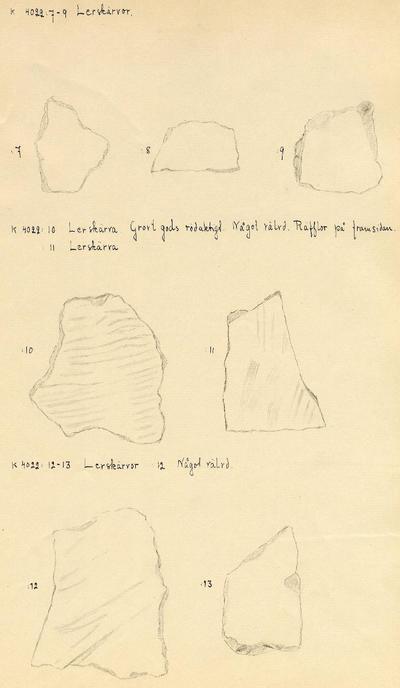 K 4022:7-9 Lerskärvor.
:7 :8 :9
K 4022:10 Lerskärva Grovt gods rödaktigt. Något välvd. Räfflor på framsidan.
:11 Lerskärva
:10 :11
K 4022:12-13 Lerskärvor 12 Något välvd.
:12 :13